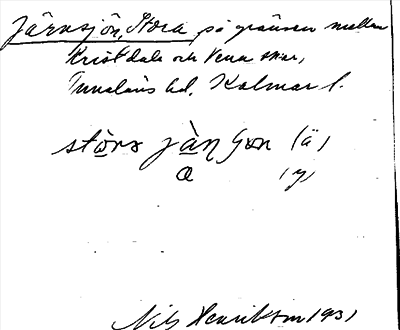 Järnsjön, Stora på gränsen mellan
Kristdala och Vena snar,
Tunaläns hd, Kalmar l.
störa jàŋ son (ä)
a (y)
Nils Henrikson 1931